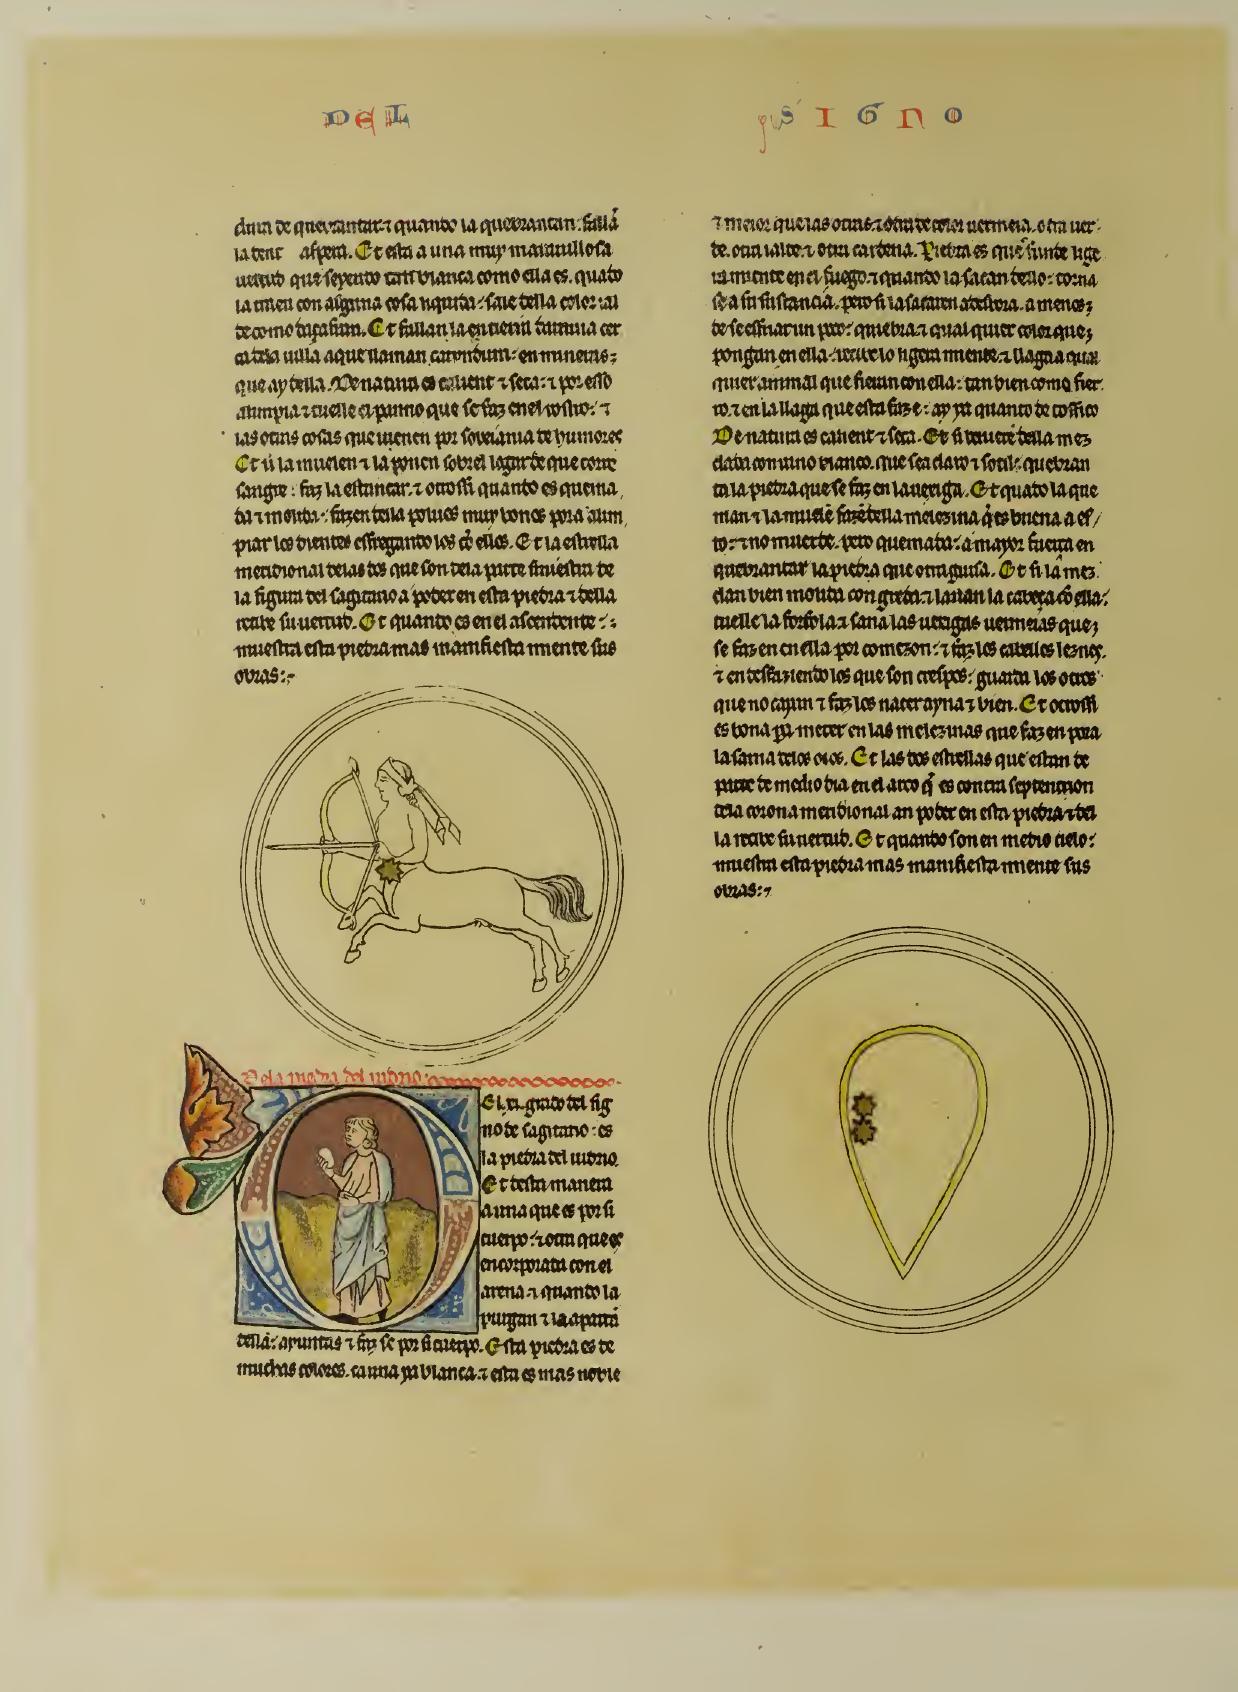 DEL SIGNO
dura de quebrantar. ⁊ quando la quebrantan: fallan
la dent aspera. Et esta a una muy marauillosa
uertud que seyendo tan blanca como ella es. quando
la muelen con alguna cosa liquida: sale della color tal
de como daçafran. Et fallan la en tierra
cerca dela uilla aque llaman en mineras;
que ay della. De natura es calient ⁊ seca: ⁊ por esso
alimpia ⁊ tuelle el panno que se faz enel rostro: ⁊
las otras cosas que uienen por sobeiania de humores
Et si la muelen ⁊ la ponen sobrel logar de que corre
sangre: faz la estancar. ⁊ otrossi quando es quema
da ⁊ molida: fazen della poluos muy bonos pora alim
piar los dientes effregando los cõ ellos. Et la estrella
meridional delas dos que son dela parte siniestra de
la figura del sagitario a poder en esta piedra ⁊ della
recibe su uertud. Et quando es en el ascendente:
muestra esta piedra mas manifiesta miente sus
obras:
Dela piedra del uidrio:
El .xi. grado del sig
no de sagitario: es
la piedra del uidrio.
Et desta manera
a una que es por si
cuerpo: ⁊ otra que es
encorporada con el
arena. ⁊ quando la
purgan ⁊ la aparta
della: ayuntas ⁊ faz se por si cuerpo. Esta piedra es de
muchas colores. ca una ya blanca. ⁊ esta es mas noble
⁊ meior que las otras. ⁊ otra de color uermeia. otra uer
de. otra ialde. ⁊ otra cardena. Piedra es que sunde lige
ra miente en el fuego. ⁊ quando la sacan dello: torna
se a su sustancia. pero si la sacaren adesora. a menos;
de se esfriar un poco: quiebra ⁊ qual quier color que;
pongan en ella: recibe lo ligera miente. ⁊ llaga a qual
quier animal que fieran con ella: tan bien como fier
ro. ⁊ en la llaga que esta faze: ay ya quanto de
De natura es calient ⁊ seca. Et si beuieren della mez
clada con uino blanco. que sea claro ⁊ sotil: quebran
ta la piedra que se faz en la uexiga. Et quando la que
man ⁊ la muelen fazen della melezina q̃ es buena a es/
to: ⁊ no muerde. pero quemada: a mayor fuerça en
quebrantar la piedra que otra guisa. Et si la mez
clan bien molida con greda. ⁊ lauan la cabeça cõ ella:
tuelle la forfola. ⁊ sana las uexigas uermeias que;
se fazen en ella por comezon: ⁊ faz los cabellos leznes.
⁊ en desfaziendo los que son crespos: guarda los otros
que no cayan ⁊ faz los nacer ayna ⁊ bien. Et otrossi
es bona pa meter en las melezinas que fazen pora
la sarna delos oios. Et las dos estrellas que estan de
parte de medio dia en el arco q̃ es contra septentrion
dela corona meridional an poder en esta piedra ⁊ del
la recibe su uertud. Et quando son en medio cielo:
muestra esta piedra mas manifiesta miente sus
obras: